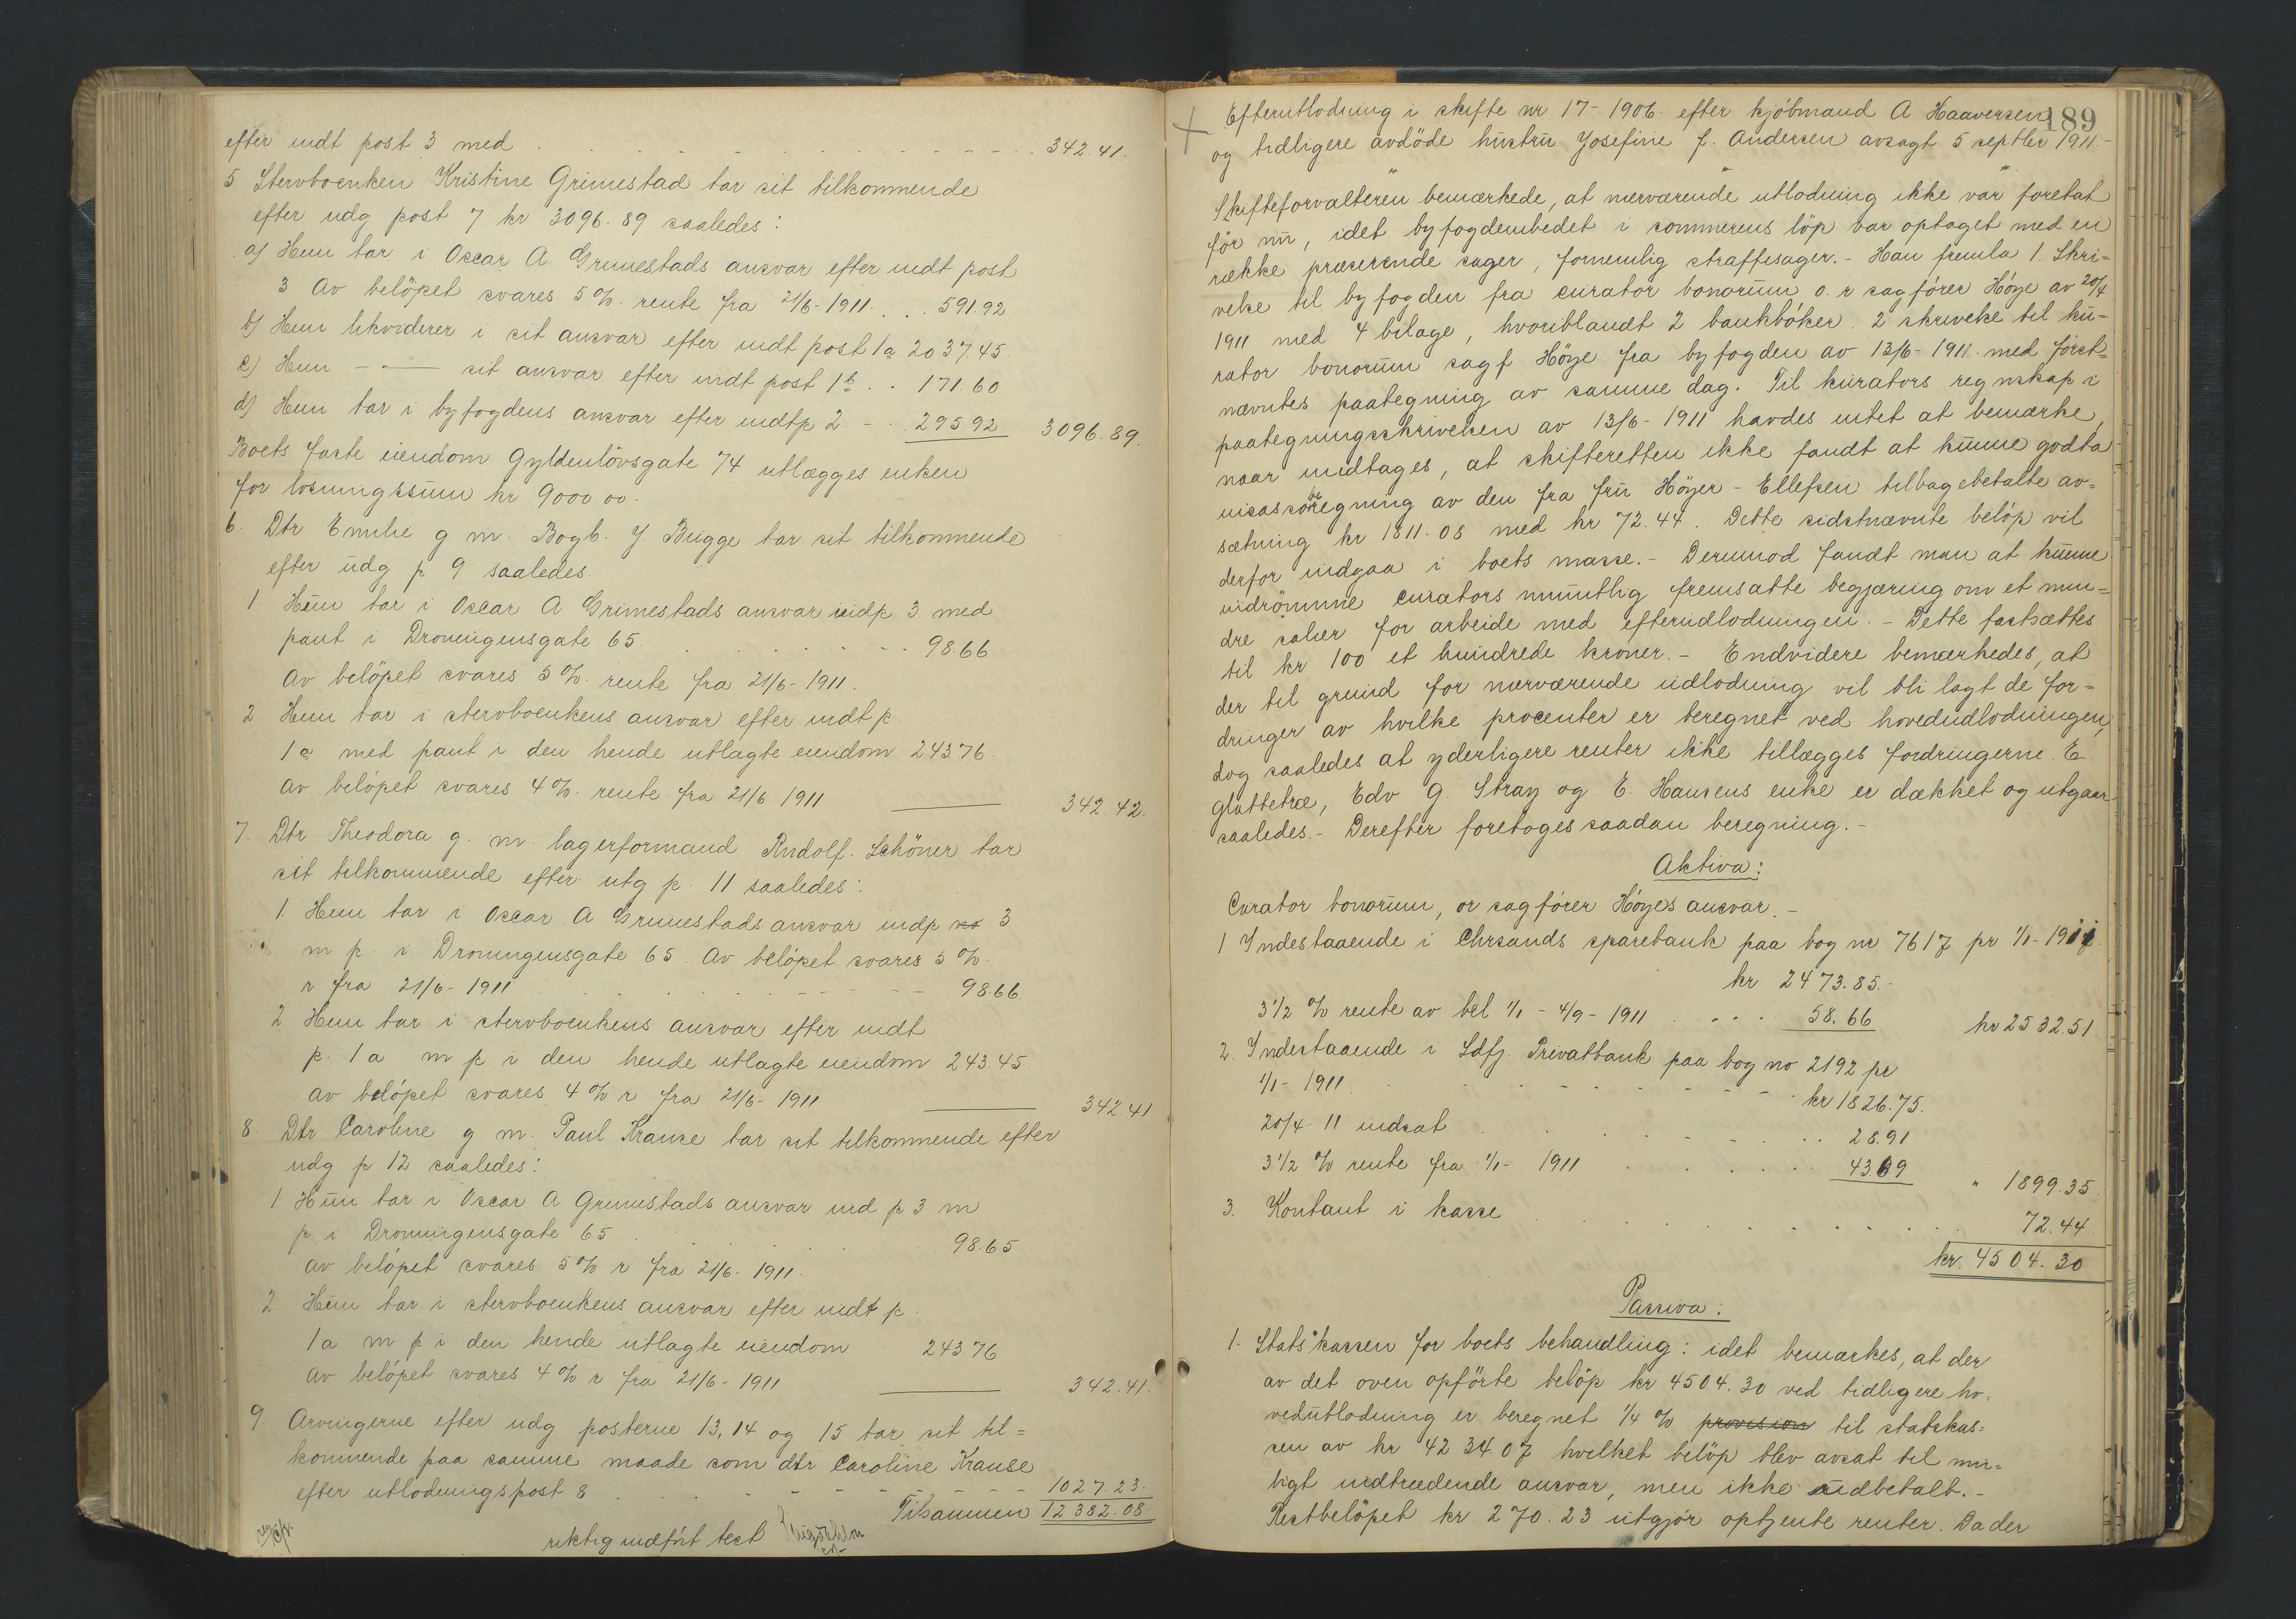 efter indt post 3 med . . . . . . . . . . 342 41.
5 Stervboenken Kristine Grimestad tar sit tilkommende
efter udg post 7 kr 3096.89 saaledes:
a) Hun tar i Oscar A Grimestads ansvar efter indt post
3 Av belöpet svares 5 %. rente fra 21/6-1911 . . . 591.92
b) Hun likviderer i sit ansvar efter indt post 1a 2037.45.
c) Hun —"— sit ansvar efter indt post 1b . . 171.60
d) Hun tar i byfogdens ansvar efter indtp 2 - . 295 92 3096.89.
Boets faste eiendom Gyldenlövsgate 74 utlægges enken
for løsningssum kr 9000.00-
6. Dtr Emilie g m. Bogb. J Bugge tar sit tilkommende
efter udg p 9 saaledes.
1 Hun tar i Oscar A Grimestads ansvar indp 3 med
pant i Droningensgate 65 . . . . . . . . 98.66
Av belöpet svares 5 %. rente fra 21/6-1911.
2. Hun tar i stervboenkens ansvar efter indt p.
1a med pant i den hende utlagte eiendom 243 76.
Av belöpet svares 4 %. rente fra 21/6 1911 ——— 342 42.
7. Dtr Theodora g. m. lagerformand Rudolf. Schöner tar
sit tilkommende efter utg p. 11 saaledes:
1. Hun tar i Oscar A Grimestads ansvar indp no 3
m p. i Droningensgate 65. Av belöpet svares 5 %.
r fra 21/6-1911 . . . . . . . . 98.66
2 Hun tar i stervboenkens ansvar efter indt
p. 1a m p i den hende utlagte eiendom 243.45
av belöpet svares 4 % r fra 21/6-1911 ——— 342.41
8. Dtr Caroline g m. Paul Krause tar sit tilkommende efter
udg p 12 saaledes:
1 Hun tar i Oscar A Grimestads ansvar ind p 3 m
p i Droningensgate 65 . . . . . . . 98.65
av belöpet svares 5 % r fra 21/6. 1911.
2. Hun tar i stervboenkens ansvar efter indt p.
1a m p i den hende utlagte eiendom 243.76
av belöpet svares 4 % r fra 21/6-1911 ——— 342.41.
9 Arvingerne efter udg posterne 13, 14 og 15 tar sit til=
kommende paa samme maade som dtr Caroline Krause
efter utlodningspost 8 . . . . . . . 1027.23.
Tilsammen 12382.08.
riktig indført test
189
Efterutlodning i skifte nr 17-1906. efter kjöbmand A Haaversen
og tidligere avdöde hustru Josefine f. Andersen avsagt 5 septbr 1911.-
Skifteforvalteren bemærkede, at nærværende utlodning ikke var foretat
för nu, idet byfogdembedet i sommerens löp var optaget med en
række præserende sager, fornemlig straffesager.- Han fremla 1. Skri-
velse til byfogden fra curator bonorum o. r sagfører Höye av 20/4
1911 med 4 bilage, hvoriblandt 2 bankbøker. 2 skrivelse til ku-
rator bonorum sagf Höye fra byfogden av 13/6-1911 med först=
nævntes paategning av samme dag. Til kurators regnskap i
paategningsskrivelsen av 13/6-1911 havdes intet at bemærke,
naar undtages, at skifteretten ikke fandt at kunne godta
av den fra fru Höyer-Ellefsen tilbagebetalte av=
sætning kr 1811.08 med kr 72.44. Dette sidstnævnte beløp vil
derfor indgaa i boets masse.- Derimod fandt man at kunne
indrömme curators muntlig fremsatte begjæring om et min=
dre salær for arbeide med efterudlodningen.- Dette fastsættes
til kr 100 et hundrede kroner.- Endvidere bemærkedes, at
der til grund for nærværende udlodning vil bli lagt de for=
dringer av hvilke procenter er beregnet ved hovedudlodningen,
dog saaledes at yderligere renter ikke tillægges fordringerne. E
Glattetræ, Edv G. Stray og E. Hansens enke er dækket og utgaar
saaledes.- Derefter foretages saadan beregning.-
Aktiva:
Curator bonorum, or sagfører Höyes ansvar.-
1 Indestaaende i Chrsands sparebank paa bog nr 7617 pr 1/1-1911.
kr 2473.85.-
3 1/2 % rente av bel 1/1 - 4/9-1911 . . . . 58.66 kr 2532.51.
2. Indestaaende i Sdfj. Privatbank paa bog no 2192 pr
1/1-1911 . . . . . . . kr 1826.75.
20/4-11 indsat . . . . . . . 28.91
3 1/2 % rente fra 1/1-1911 . . . . . 43.69 " 1899.35
3. Kontant i kasse . . . . . . . . . 72.44
kr. 4504.30
Passiva:
1. Statskassen for boets behandling: idet bemærkes, at der
av det oven opförte belöp kr 4504.30 ved tidligere ho-
vedutlodning er beregnet 1/4 % provision til statskas=
sen av kr 4234.07 hvilket belöp blev avsat til mu=
ligt indtrædende ansvar, men ikke udbetalt.-
Restbelöpet kr 270.23 utgjör optjente renter. Da der